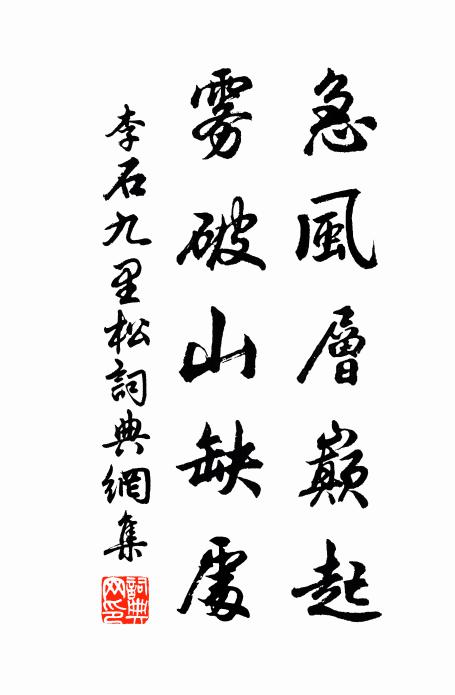 急風層巔起
雾破山缺處
李石九里松詞典網集
詞典网印